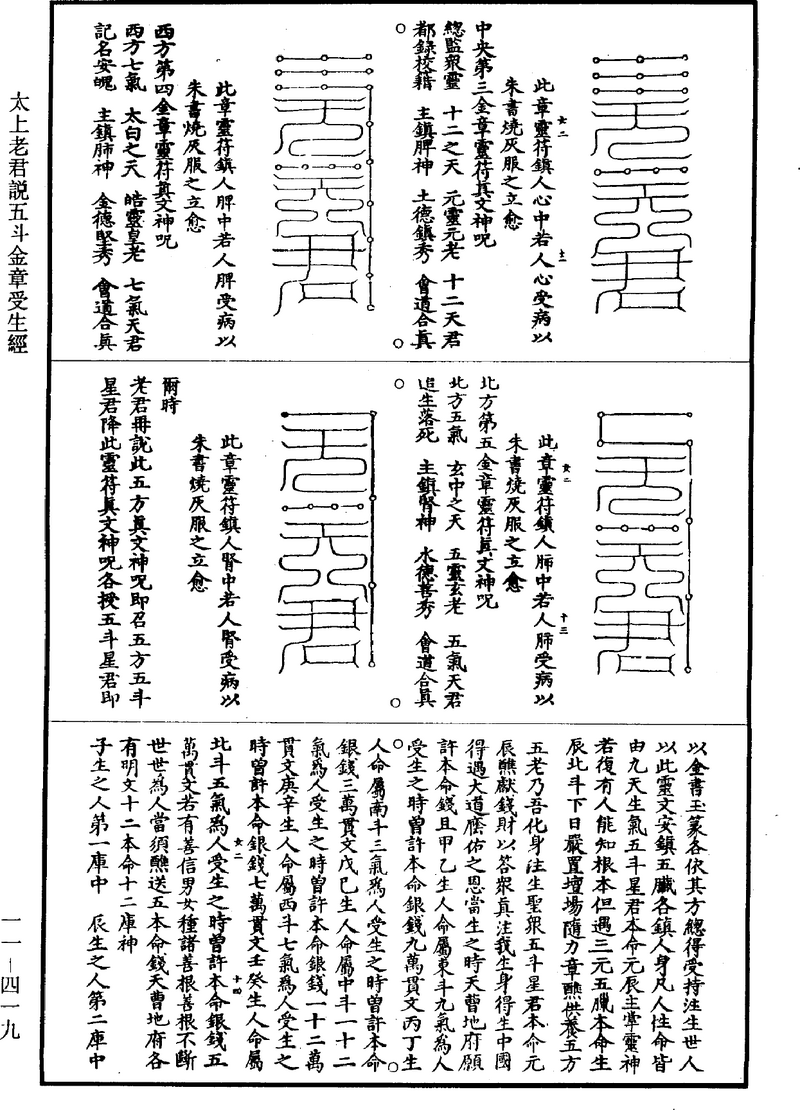 太上老君説五斗金章受生經
一一—四一九
此章靈符鎮人心中若人心受病以
朱書燒灰服之立愈
中央第三金章靈符真文神呪
總監衆靈 十二之天 元靈元老 十二天君
都錄校籍 主鎮脾神 土德鎮秀 會道合真
此章靈符鎮人脾中若人脾受病以
朱書燒灰服之立愈
西方第四金章靈符真文神呪
西方七氣 太白之天 皓靈皇老 七氣天君
記名安魄 主鎮肺神 金德堅秀 會道合真
此章靈符鎮人肺中若人肺受病以
朱書燒灰服之立愈
北方第五金章靈符真文神呪
北方五氣 玄中之天 五靈玄老 五氣天君
追生落死 主鎮腎神 水德善秀 會道合真
此章靈符鎮人腎中若人腎受病以
朱書燒灰服之立愈
爾時
老君再説此五方真文神呪即召五方五斗
星君降此靈符真文神呪各授五斗星君即
以金書玉篆各依其方總得受持注生世人
以此靈文安鎮五臟各鎮人身凡人性命皆
由九天生氣五斗星君本命元辰主掌靈神
若復有人能知根本但遇三元五臘本命生
辰北斗下日嚴置壇場隨力章醮供養五方
五老乃吾化身注生聖衆五斗星君本命元
辰醮獻錢財以答衆真注我生身得生中國
得遇大道麽佑之恩當生之時天曹地府願
許本命錢且甲乙生人命屬東斗九氣爲人
受生之時曽許本命銀錢九萬貫文丙丁生
人命屬南斗三氣爲人受生之時曽許本命
銀錢三萬貫文戊巳生人命屬中斗一十二
氣爲人受生之時曽許本命銀錢一十二萬
貫文庚辛生人命屬西斗七氣爲人受生之
時曽許本命銀錢七萬貫文壬癸生人命屬
北斗五氣爲人受生之時曽許本命銀錢五
萬貫文若有善信男女種諸善根善根不斷
世世爲人當須醮送五本命錢天曹地府各
有明文十二本命十二庫神
子生之人第一庫中 辰生之人第二庫中